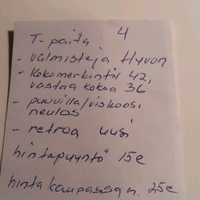 4
T-paita
- valmistaja Hyvon
- Kokomerkintö 42,
vastaa kokoa 36
- puuvilla/viskoosi
neulos
- retroa uusi
hintapyyntö 15e
hinta kaupassa n. 25e